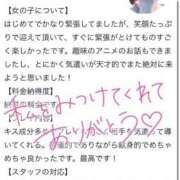 【女の子について】
はじめてでかなり緊張してましたが、笑顔たっ
ぷりで迎えて頂いて、すぐ緊張がとけてものすご
く楽しかったです。趣味のアニメのお話もできま
したし、とにかく気遣いが天才的でまた絶対に来
ようと思いました！
【料金納得度】
みつけてくれて
ありがとう
キス成分多
いてくれる。
めちゃ良かったです。最高です！
【スタッフの対応】